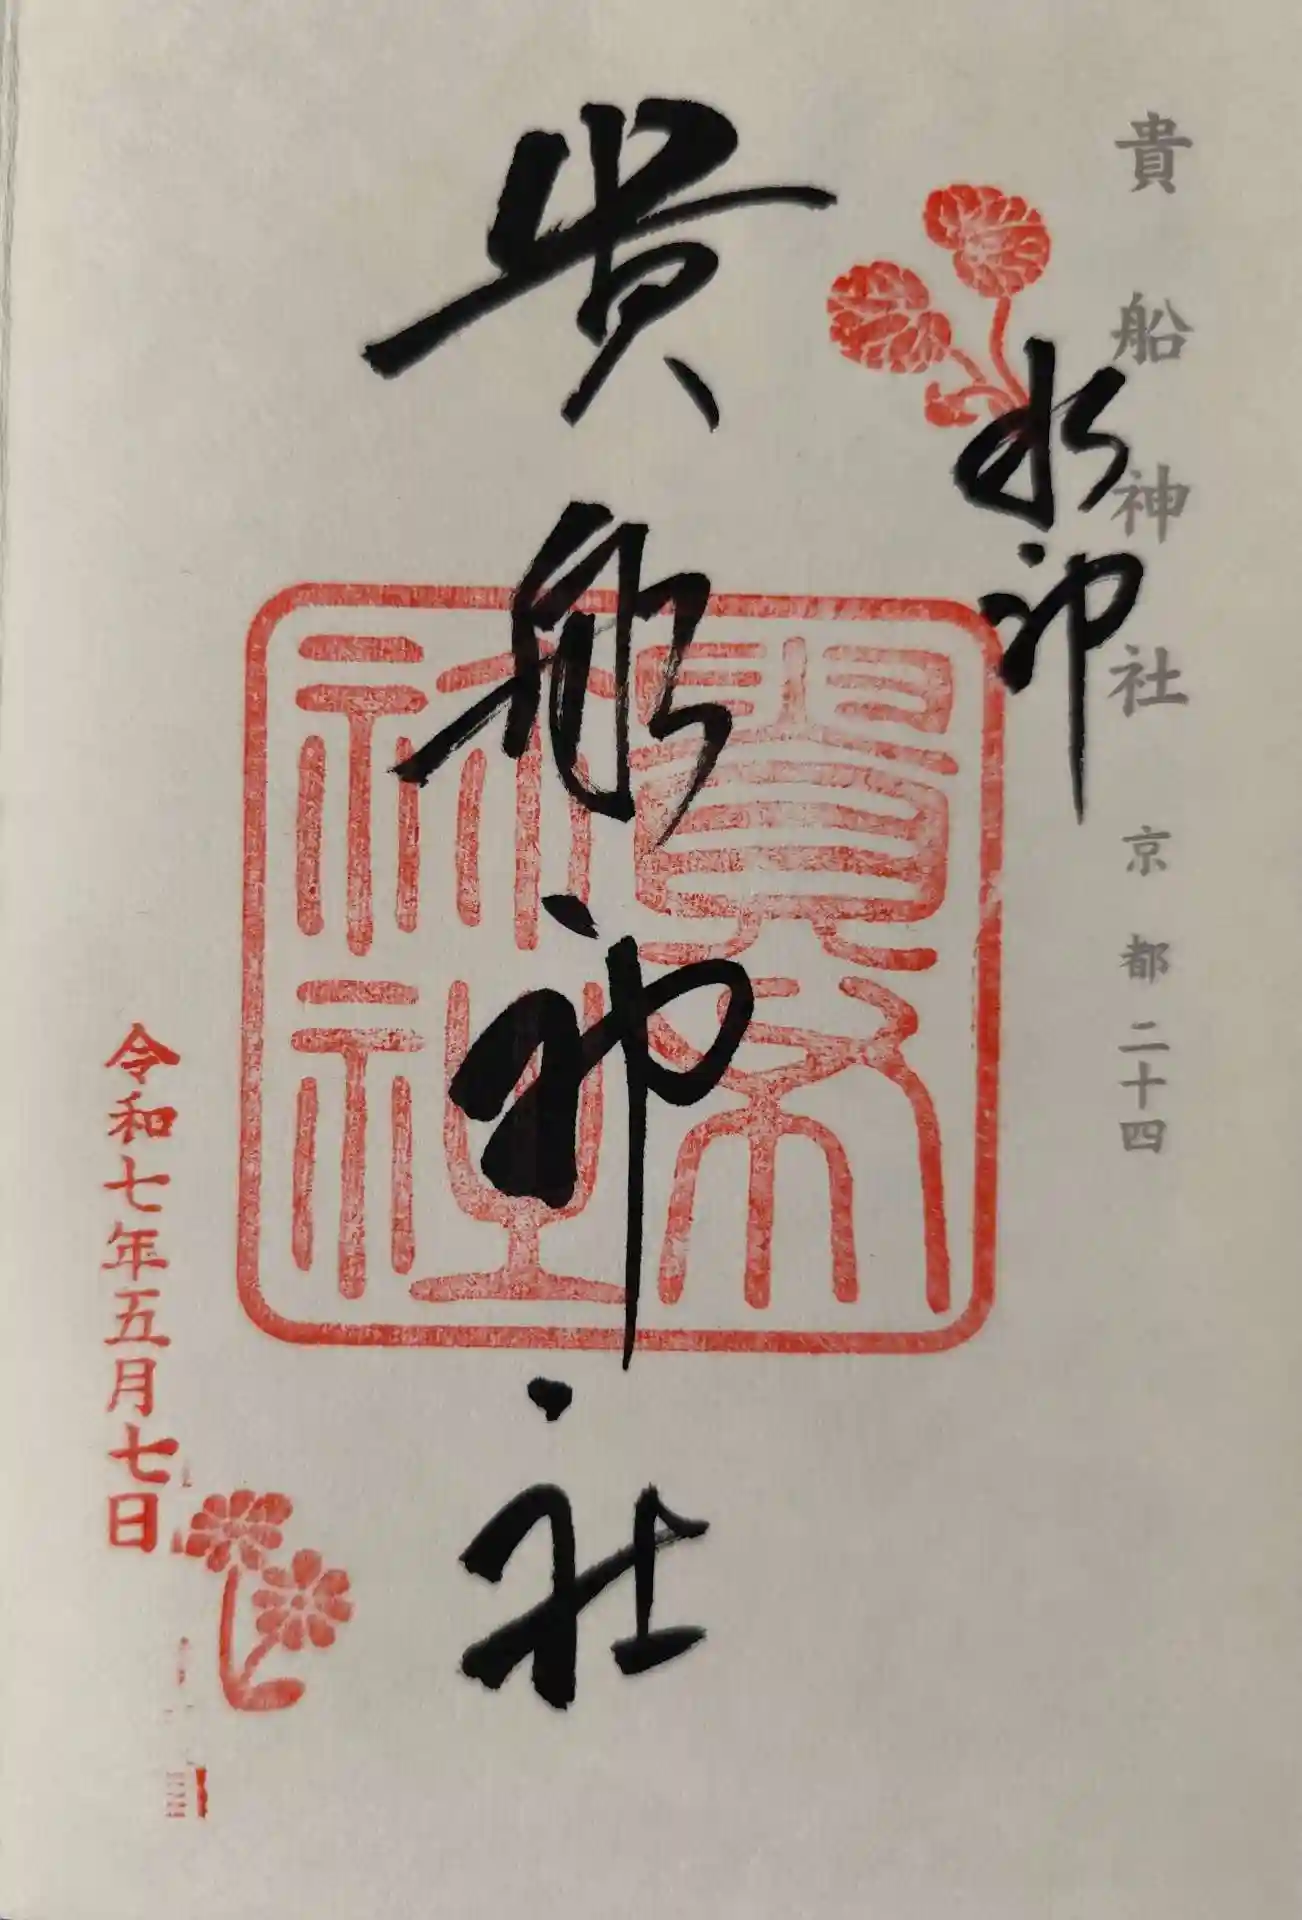 貴船神社 京都二十四
水神
貴船神社
貴布
祢社
令和七年五月七日